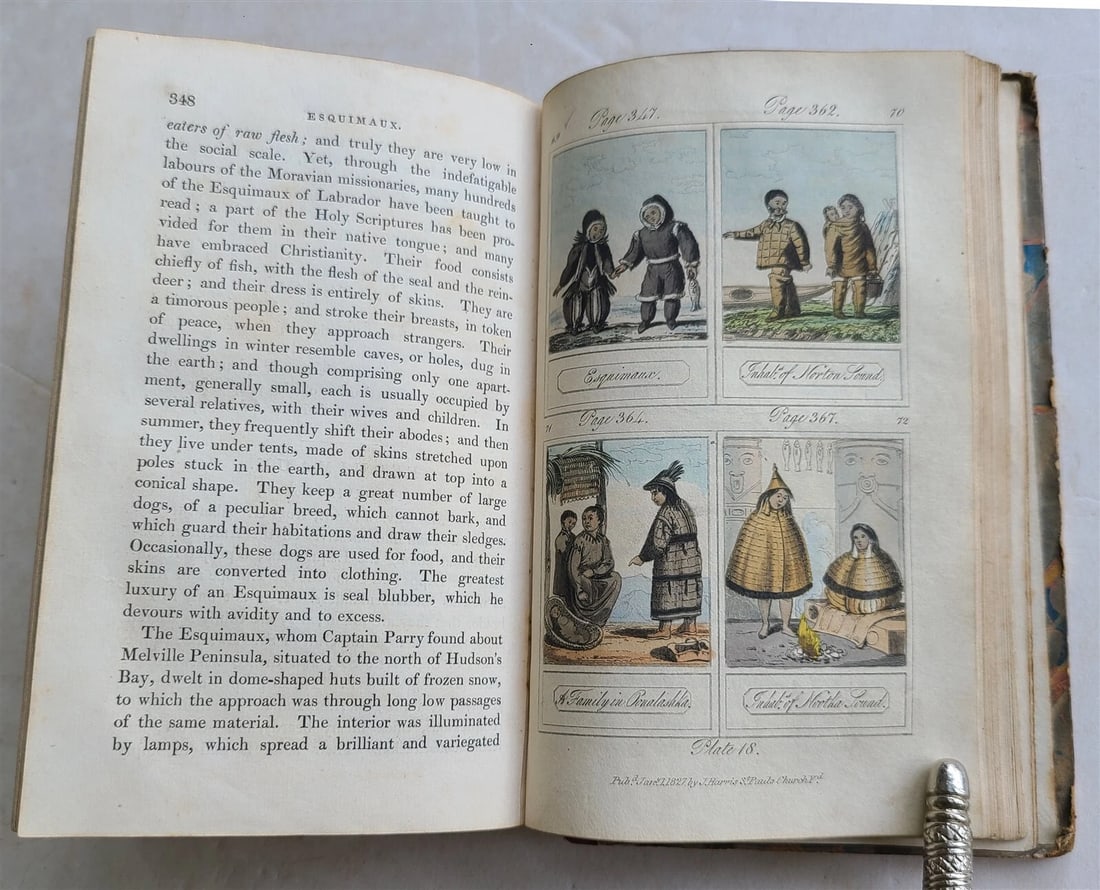 348
ESQUIMAUX.
eaters of raw flesh; and truly they are very low in
the social scale. Yet, through the indefatigable
labours of the Moravian missionaries, many hundreds
of the Esquimaux of Labrador have been taught to
read; a part of the Holy Scriptures has been pro-
vided for them in their native tongue; and many
have embraced Christianity. Their food consists
chiefly of fish, with the flesh of the seal and the rein-
deer; and their dress is entirely of skins. They are
a timorous people; and stroke their breasts, in token
of peace, when they approach strangers. Their
dwellings in winter resemble caves, or holes, dug in
the earth; and though comprising only one apart-
ment, generally small, each is usually occupied by
several relatives, with their wives and children. In
summer, they frequently shift their abodes; and then
they live under tents, made of skins stretched upon
poles stuck in the earth, and drawn at top into a
conical shape. They keep a great number of large
dogs, of a peculiar breed, which cannot bark, and
which guard their habitations and draw their sledges.
Occasionally, these dogs are used for food, and their
skins are converted into clothing. The greatest
luxury of an Esquimaux is seal blubber, which he
devours with avidity and to excess.
The Esquimaux, whom Captain Parry found about
Melville Peninsula, situated to the north of Hudson's
Bay, dwelt in dome-shaped huts built of frozen snow,
to which the approach was through long low passages
of the same material. The interior was illuminated
by lamps, which spread a brilliant and variegated
Page 347.
Page 362. 70
Esquimaux.
Inhabts. of Norton Sound.
71 Page 364.
Page 367. 72
A Family in Oonalashka.
Inhabts. of Nootka Sound.
Plate 18.
Pubd. Jany. 1, 1827 by J. Harris St. Pauls Church Yd.